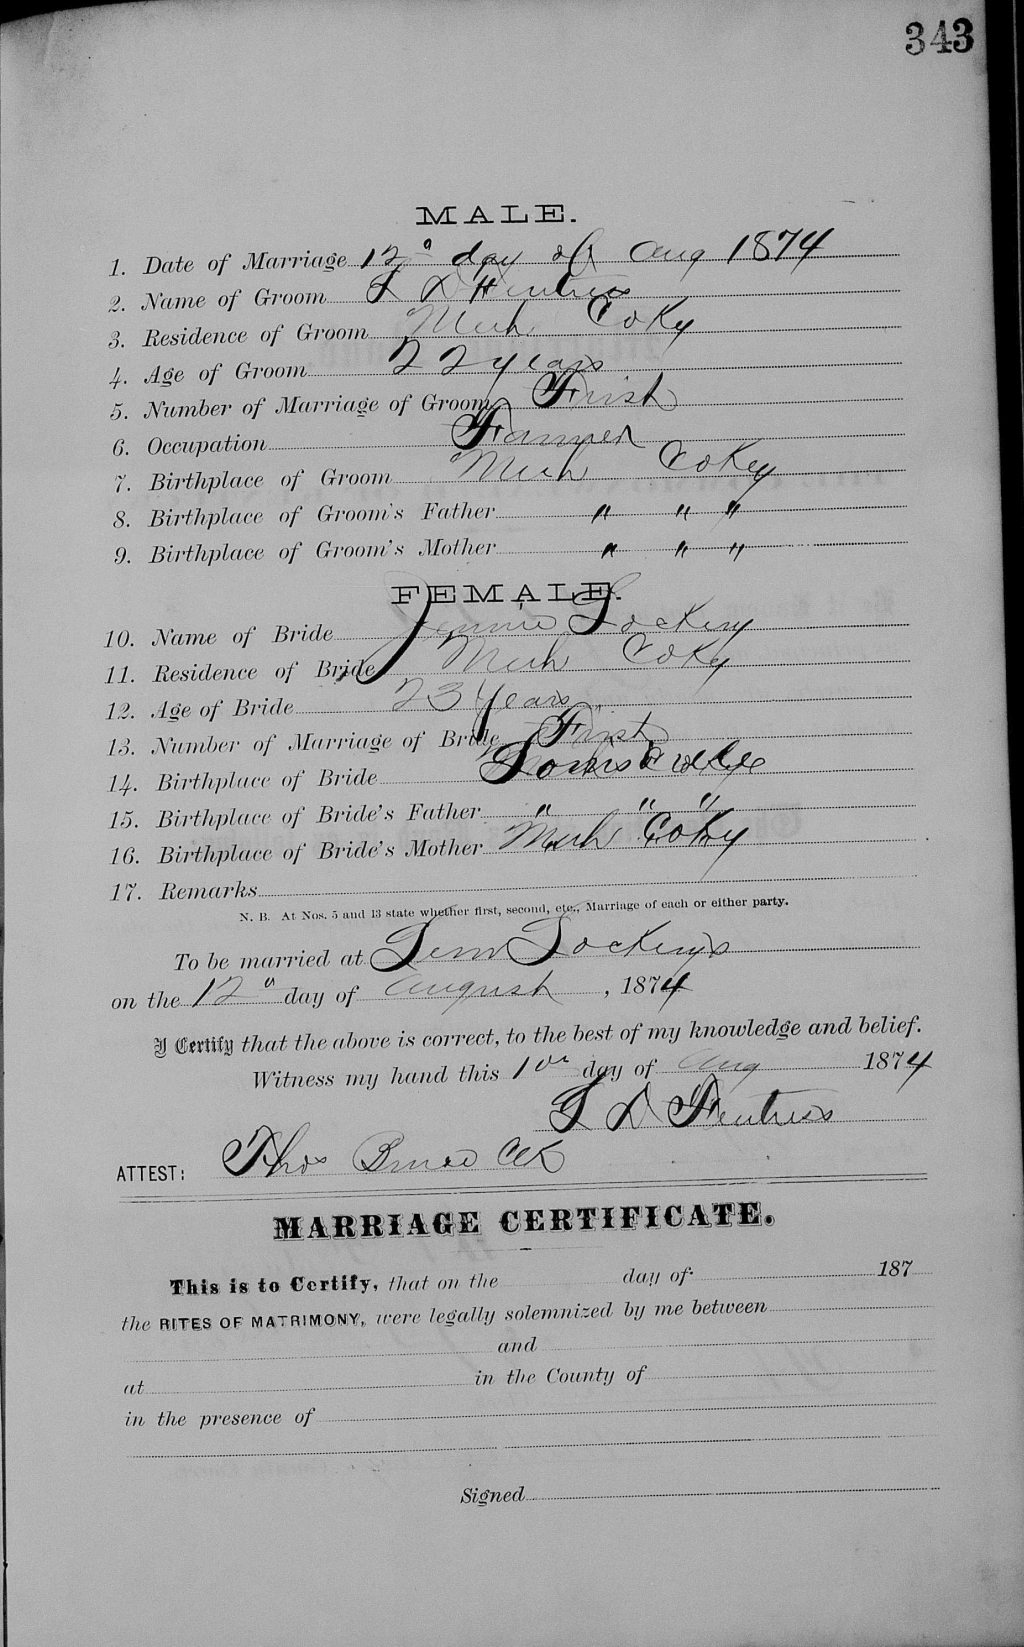 343
MALE.
1. Date of Marriage 12" day of Aug 1874
2. Name of Groom D Fentress
3. Residence of Groom Muh Co Ky
4. Age of Groom 22 years
5. Number of Marriage of Groom First
6. Occupation Farmer
7. Birthplace of Groom Muh Co Key
8. Birthplace of Groom's Father " " "
9. Birthplace of Groom's Mother " " "
FEMALE.
10. Name of Bride Jennie Lockery
11. Residence of Bride Muh Co Ky
12. Age of Bride 23 years
13. Number of Marriage of Bride First
14. Birthplace of Bride
15. Birthplace of Bride's Father " " "
16. Birthplace of Bride's Mother Muh Co Ky
17. Remarks
N. B. At Nos. 5 and 13 state whether first, second, etc., Marriage of each or either party.
To be married at Lockery's
on the 12" day of August, 1874
I Certify that the above is correct, to the best of my knowledge and belief.
Witness my hand this day of Aug 1874
D Fentress
ATTEST: Thos Bruce Clk
MARRIAGE CERTIFICATE.
This is to Certify, that on the day of 187
the RITES OF MATRIMONY, were legally solemnized by me between
and
at in the County of
in the presence of
Signed